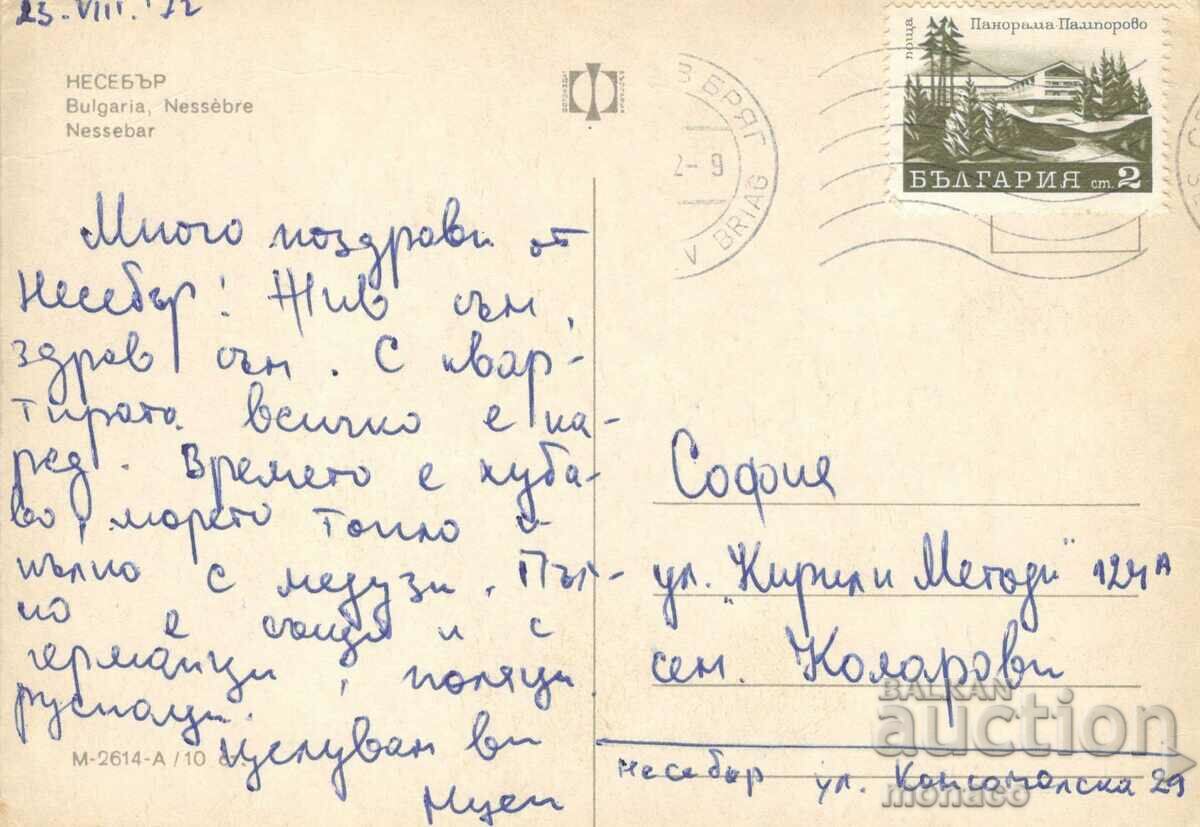 23. VIII. '72
НЕСЕБЪР
Bulgaria, Nessèbre
Nessebar
Панорама-Пампорово
поща
БЪЛГАРИЯ ст. 2
В БРЯГ
V BRIAG
2-9
Много поздрави от
Несебър! Жив съм,
здрав съм. С квар-
тирата всичко е на-
ред. Времето е хуба-
во, морето топло и
пълно с медузи. Пъл-
но е също и с
германци, поляци,
руснаци.
Целувам ви
София
ул. "Кирил и Методи" 124А
сем. Коларови
Несебър ул. Комсомолска 29
М-2614-А/10
BALKAN
auction
monaco